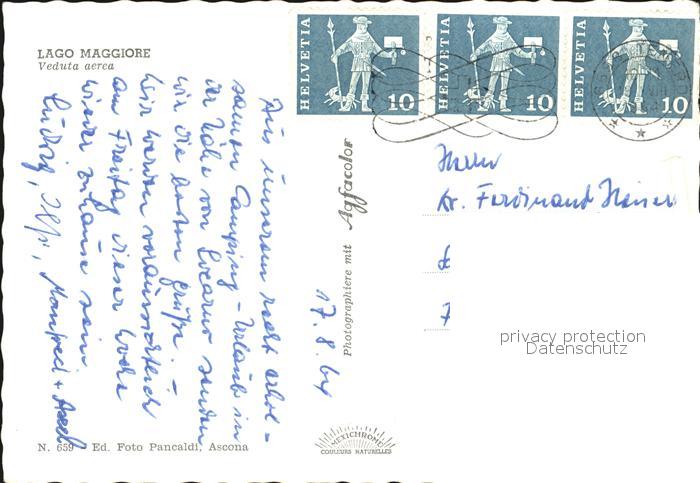 LAGO MAGGIORE
Veduta aerea
Aus unserem recht erhol-
samen Camping-Urlaub in
der Nähe von Locarno senden
wir die besten Grüße. –
Wir werden voraussichtlich
am Freitag dieser Woche
wieder zuhause sein
Ludwig, Ilse, Manfred + Axel
17. 8. 64
Photographiere mit Agfacolor
HELVETIA 10
HELVETIA 10
HELVETIA 10
Herrn
Dr. Ferdinand
privacy protection
Datenschutz
MEXICHROME
COULEURS NATURELLES
N. 659 Ed. Foto Pancaldi, Ascona